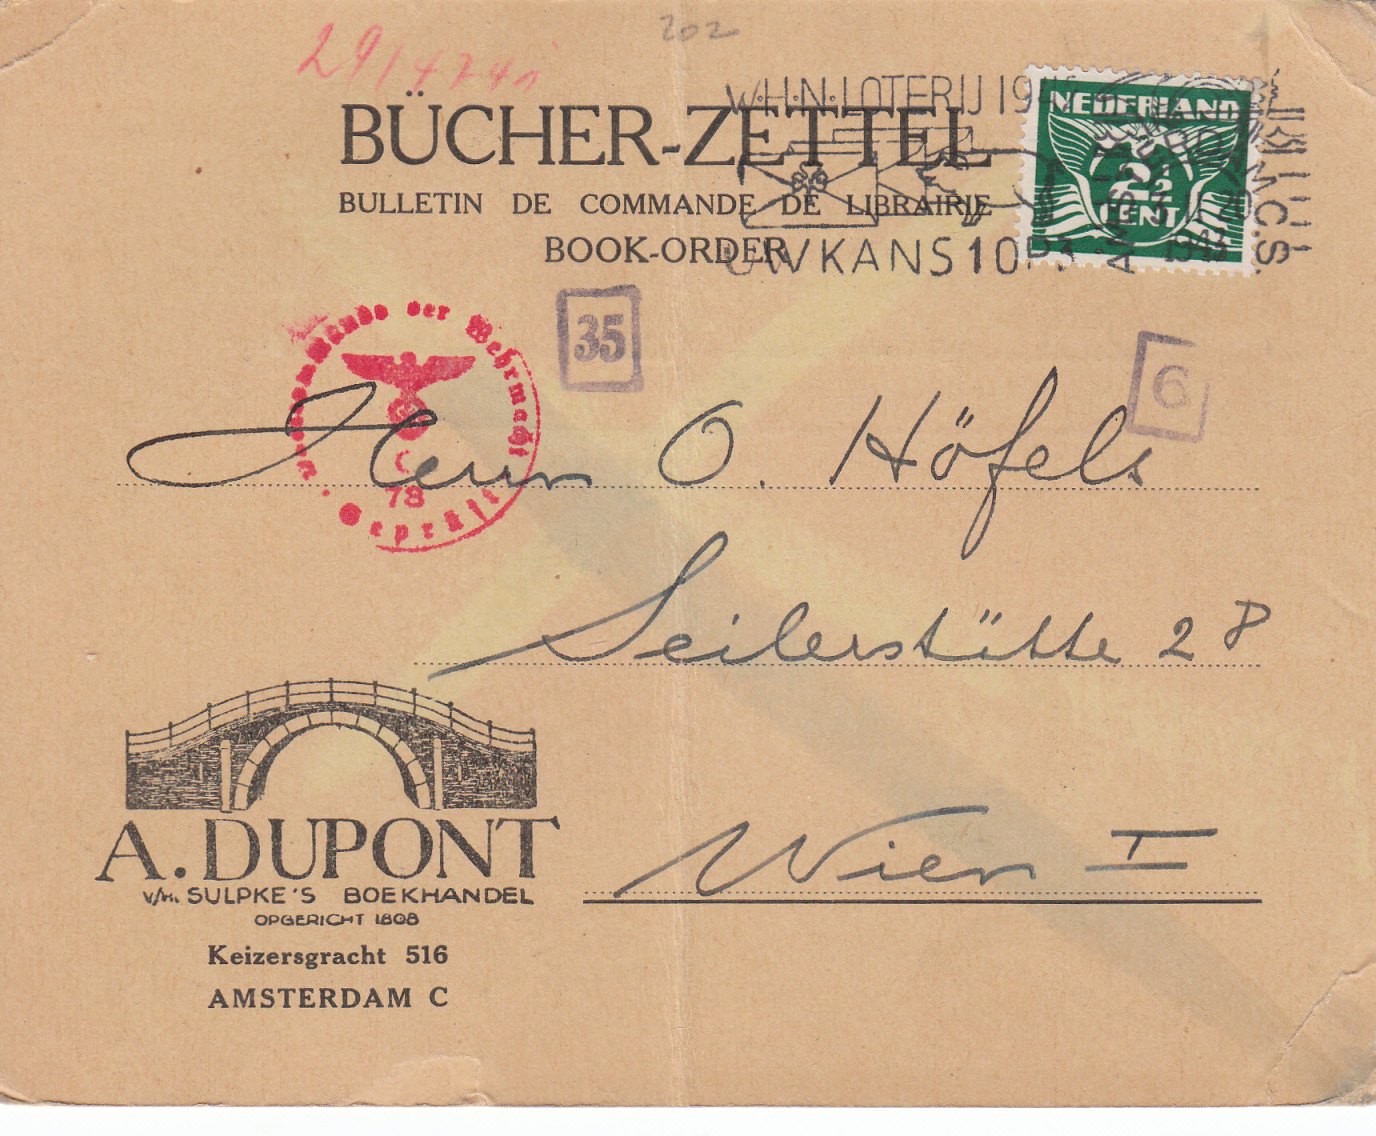 202
29/4741
BÜCHER-ZETTEL
BULLETIN DE COMMANDE DE LIBRAIRIE
BOOK-ORDER
W·H·N·LOTERIJ 19
UW KANS 1 OP 3
NEDERLAND
2½
CENT
AMST
1943
A.C.S.
der Wehrmacht
Geprüft
C
78
35
6
Herrn O. Höfels
Seilerstätte 28
Wien I
A. DUPONT
v/h. SULPKE'S BOEKHANDEL
OPGERICHT 1808
Keizersgracht 516
AMSTERDAM C